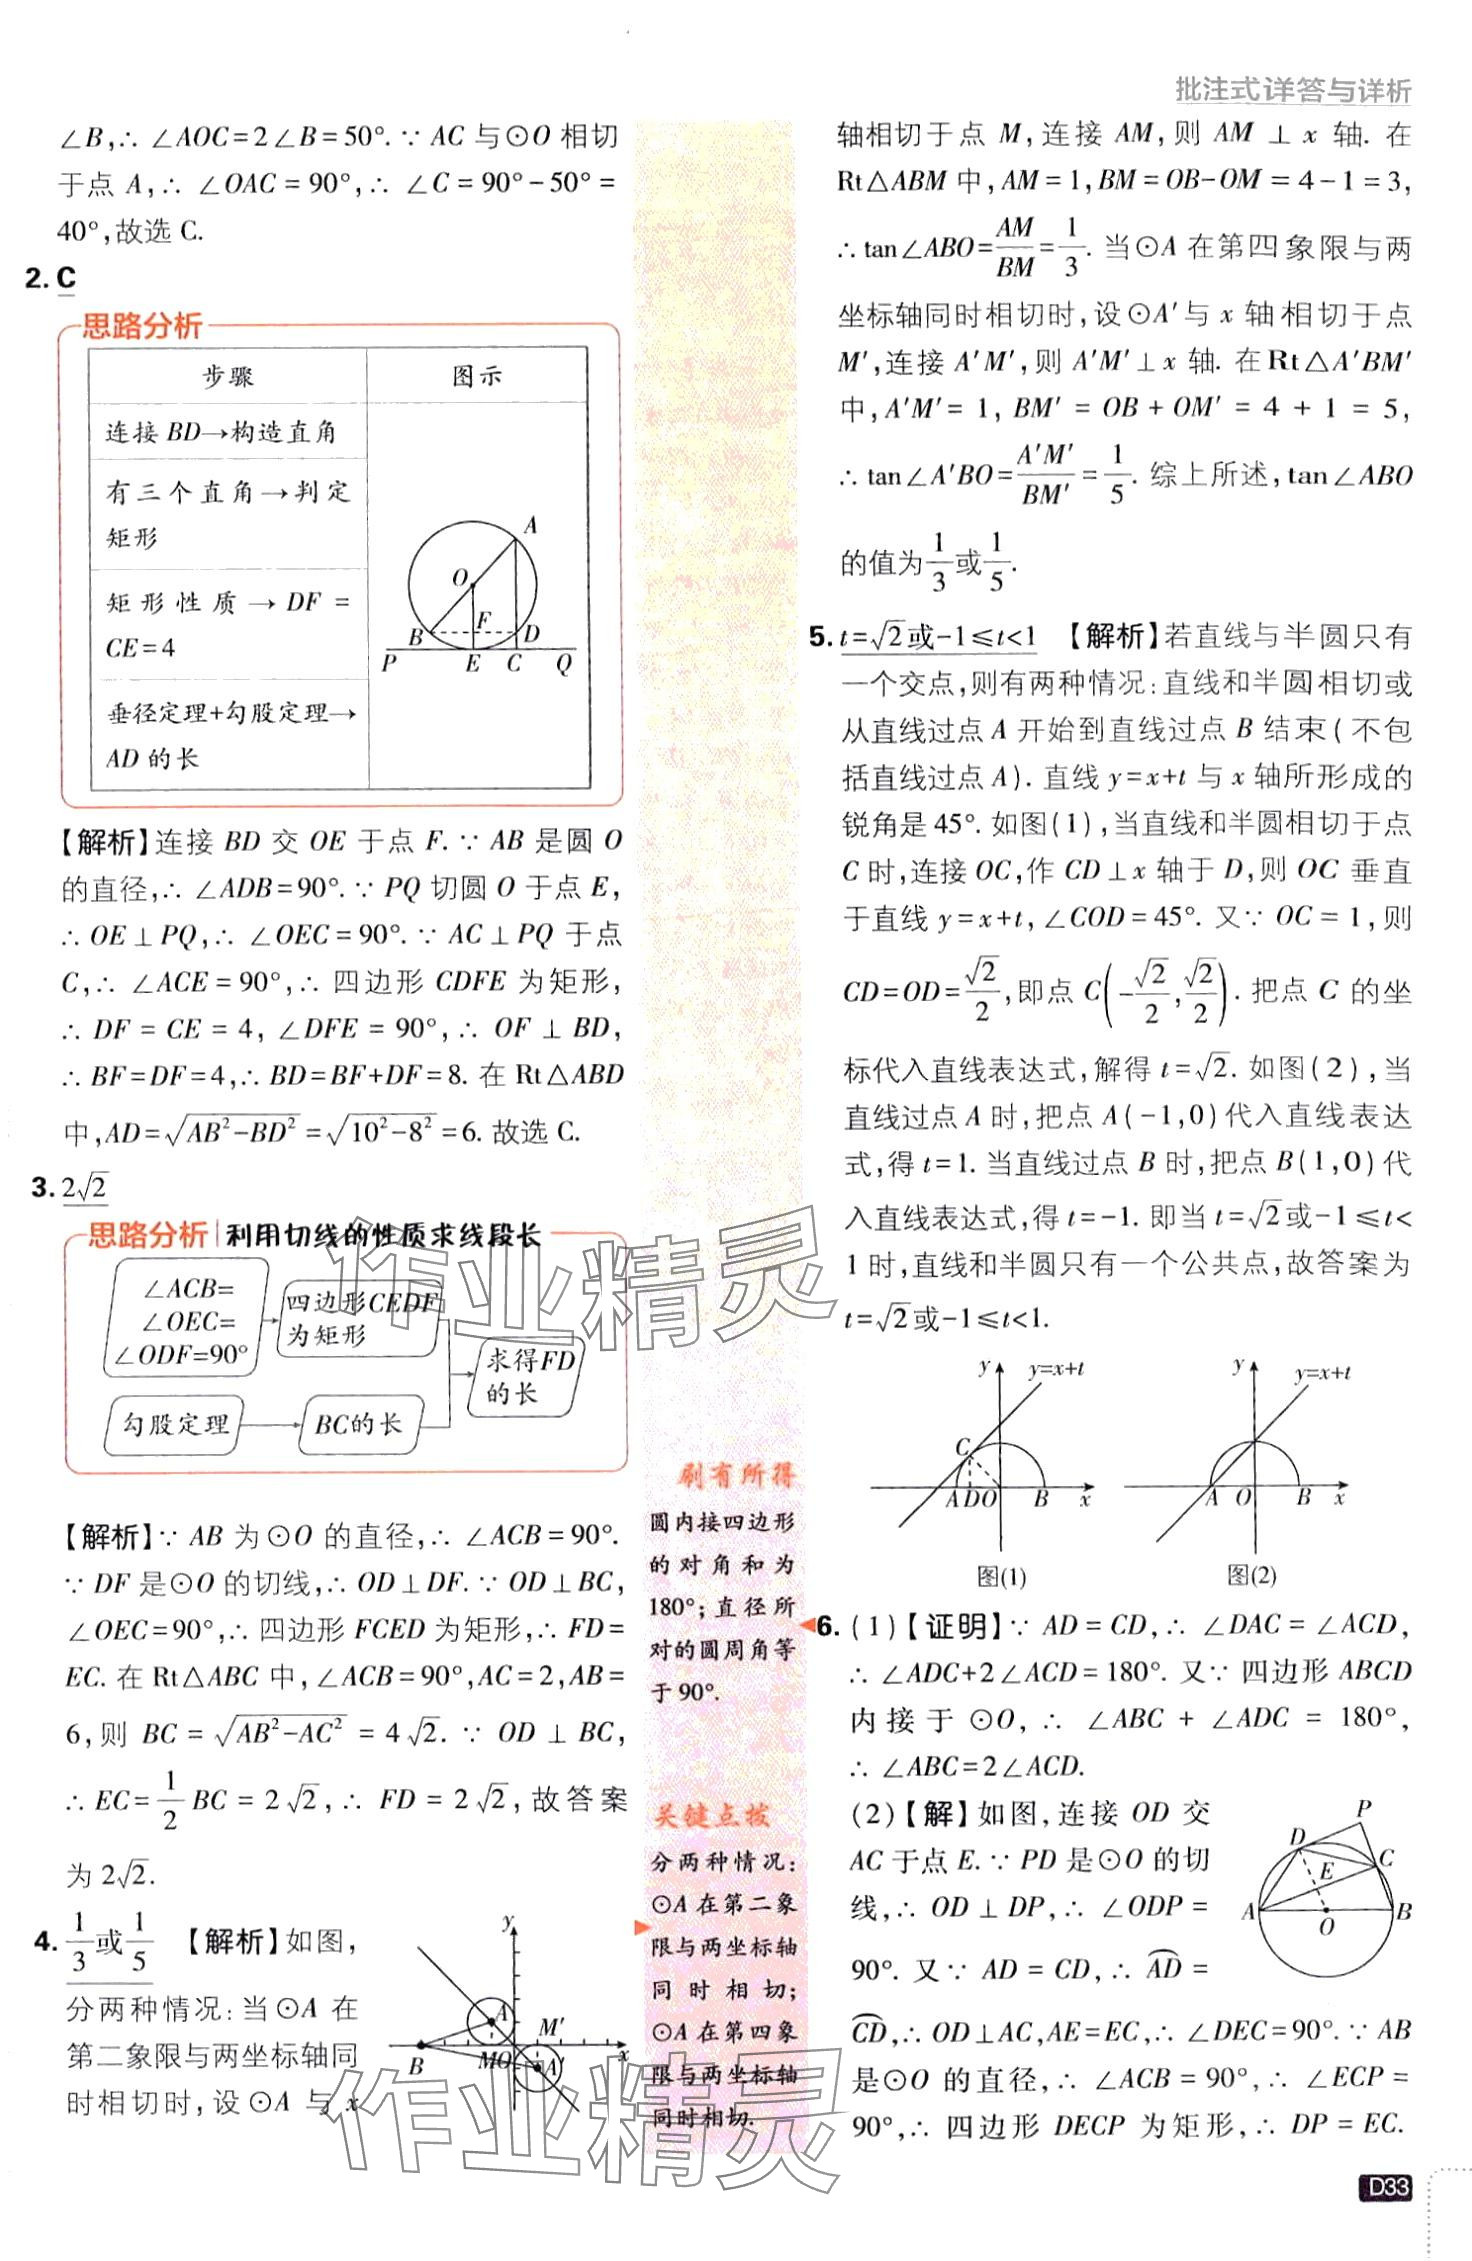 批注式详答与详析
∠B,∴ ∠AOC=2∠B=50°.∵ AC 与⊙O 相切
于点 A,∴ ∠OAC=90°,∴ ∠C=90°-50°=
40°,故选 C.
2. C
思路分析
步骤 图示
连接 BD→构造直角
有三个直角→判定
矩形
矩形性质→DF=
CE=4
垂径定理+勾股定理→
AD 的长
A
O
F
B D
P E C Q
【解析】连接 BD 交 OE 于点 F.∵ AB 是圆 O
的直径,∴ ∠ADB=90°.∵ PQ 切圆 O 于点 E,
∴ OE⊥PQ,∴ ∠OEC=90°.∵ AC⊥PQ 于点
C,∴ ∠ACE=90°,∴ 四边形 CDFE 为矩形,
∴ DF=CE=4,∠DFE=90°,∴ OF⊥BD,
∴ BF=DF=4,∴ BD=BF+DF=8. 在 Rt△ABD
中,AD=√(AB²-BD²)=√(10²-8²)=6. 故选 C.
3. 2√2
思路分析|利用切线的性质求线段长
∠ACB=
∠OEC=
∠ODF=90°
四边形CEDF
为矩形
求得FD
的长
勾股定理
BC的长
【解析】∵ AB 为⊙O 的直径,∴ ∠ACB=90°.
∵ DF 是⊙O 的切线,∴ OD⊥DF.∵ OD⊥BC,
∠OEC=90°,∴ 四边形 FCED 为矩形,∴ FD=
EC. 在 Rt△ABC 中,∠ACB=90°,AC=2,AB=
6,则 BC=√(AB²-AC²)=4√2. ∵ OD⊥BC,
∴ EC=1/2 BC=2√2,∴ FD=2√2,故答案
为 2√2.
4. 1/3或1/5 【解析】如图,
分两种情况:当⊙A 在
第二象限与两坐标轴同
时相切时,设⊙A 与 x
y
A
M′
B
MO
A′
x
刷有所得
圆内接四边形
的对角和为
180°;直径所
对的圆周角等
于90°.
关键点拨
分两种情况:
⊙A 在第二象
限与两坐标轴
同时相切;
⊙A 在第四象
限与两坐标轴
同时相切.
轴相切于点 M,连接 AM,则 AM⊥x 轴. 在
Rt△ABM 中,AM=1,BM=OB-OM=4-1=3,
∴ tan∠ABO=AM/BM=1/3. 当⊙A 在第四象限与两
坐标轴同时相切时,设⊙A′与 x 轴相切于点
M′,连接 A′M′,则 A′M′⊥x 轴. 在 Rt△A′BM′
中,A′M′=1, BM′=OB+OM′=4+1=5,
∴ tan∠A′BO=A′M′/BM′=1/5. 综上所述,tan∠ABO
的值为1/3或1/5.
5. t=√2或-1≤t<1 【解析】若直线与半圆只有
一个交点,则有两种情况:直线和半圆相切或
从直线过点 A 开始到直线过点 B 结束(不包
括直线过点 A). 直线 y=x+t 与 x 轴所形成的
锐角是 45°. 如图(1),当直线和半圆相切于点
C 时,连接 OC,作 CD⊥x 轴于 D,则 OC 垂直
于直线 y=x+t,∠COD=45°. 又∵ OC=1,则
CD=OD=√2/2,即点 C(-√2/2,√2/2). 把点 C 的坐
标代入直线表达式,解得 t=√2. 如图(2),当
直线过点 A 时,把点 A(-1,0)代入直线表达
式,得 t=1. 当直线过点 B 时,把点 B(1,0)代
入直线表达式,得 t=-1. 即当 t=√2或-1≤t<
1 时,直线和半圆只有一个公共点,故答案为
t=√2或-1≤t<1.
y y=x+t
C
A D O B x
图(1)
y y=x+t
A O B x
图(2)
6. (1)【证明】∵ AD=CD,∴ ∠DAC=∠ACD,
∴ ∠ADC+2∠ACD=180°. 又∵ 四边形 ABCD
内接于⊙O,∴ ∠ABC+∠ADC=180°,
∴ ∠ABC=2∠ACD.
(2)【解】如图,连接 OD 交
AC 于点 E.∵ PD 是⊙O 的切
线,∴ OD⊥DP,∴ ∠ODP=
90°. 又∵ AD=CD,∴ A͡D=
C͡D,∴ OD⊥AC,AE=EC,∴ ∠DEC=90°.∵ AB
是⊙O 的直径,∴ ∠ACB=90°,∴ ∠ECP=
90°,∴ 四边形 DECP 为矩形,∴ DP=EC.
P
D
E C
A B
O
D33
作业精灵
作业精灵